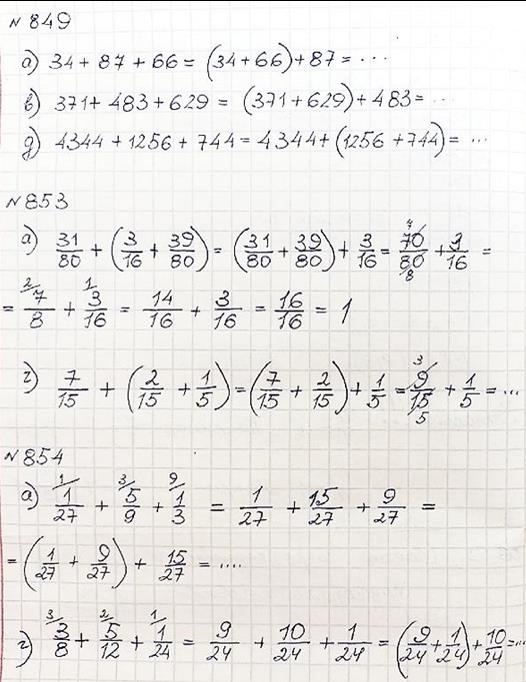 №849
а) 34 + 87 + 66 = (34 + 66) + 87 = ...
в) 371 + 483 + 629 = (371 + 629) + 483 = ...
д) 4344 + 1256 + 744 = 4344 + (1256 + 744) = ...
№853
а) 31/80 + (3/16 + 39/80) = (31/80 + 39/80) + 3/16 = 70/80 (7/8) + 3/16 =
= 2/ 7/8 + 1/ 3/16 = 14/16 + 3/16 = 16/16 = 1
г) 7/15 + (2/15 + 1/5) = (7/15 + 2/15) + 1/5 = 9/15 (3/5) + 1/5 = ...
№854
а) 1/ 1/27 + 3/ 5/9 + 9/ 1/3 = 1/27 + 15/27 + 9/27 =
= (1/27 + 9/27) + 15/27 = ....
г) 3/ 3/8 + 2/ 5/12 + 1/ 1/24 = 9/24 + 10/24 + 1/24 = (9/24 + 1/24) + 10/24 = ...